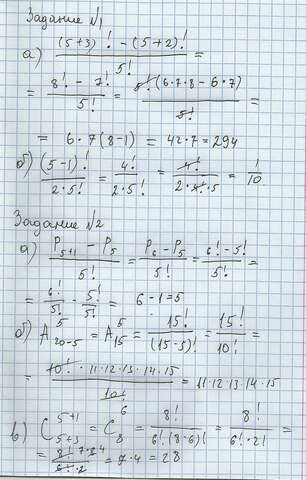 Задание №1
а) ((5+3)! - (5+2)!)/5! =
= (8! - 7!)/5! = 5!(6·7·8 - 6·7)/5! =
= 6·7(8-1) = 42·7 = 294
б) (5-1)!/(2·5!) = 4!/(2·5!) = 4!/(2·4!·5) = 1/10
Задание №2
а) (P₅₊₁ - P₅)/5! = (P₆ - P₅)/5! = (6! - 5!)/5! =
= 6!/5! - 5!/5! = 6-1=5
б) A⁵₂₀₋₅ = A⁵₁₅ = 15!/(15-5)! = 15!/10! =
= 10!·11·12·13·14·15/10! = 11·12·13·14·15
в) C⁵⁺¹₅₊₃ = C⁶₈ = 8!/(6!(8-6)!) = 8!/(6!·2!) =
= 6!·7·8 4/(6!·2) = 7·4 = 28